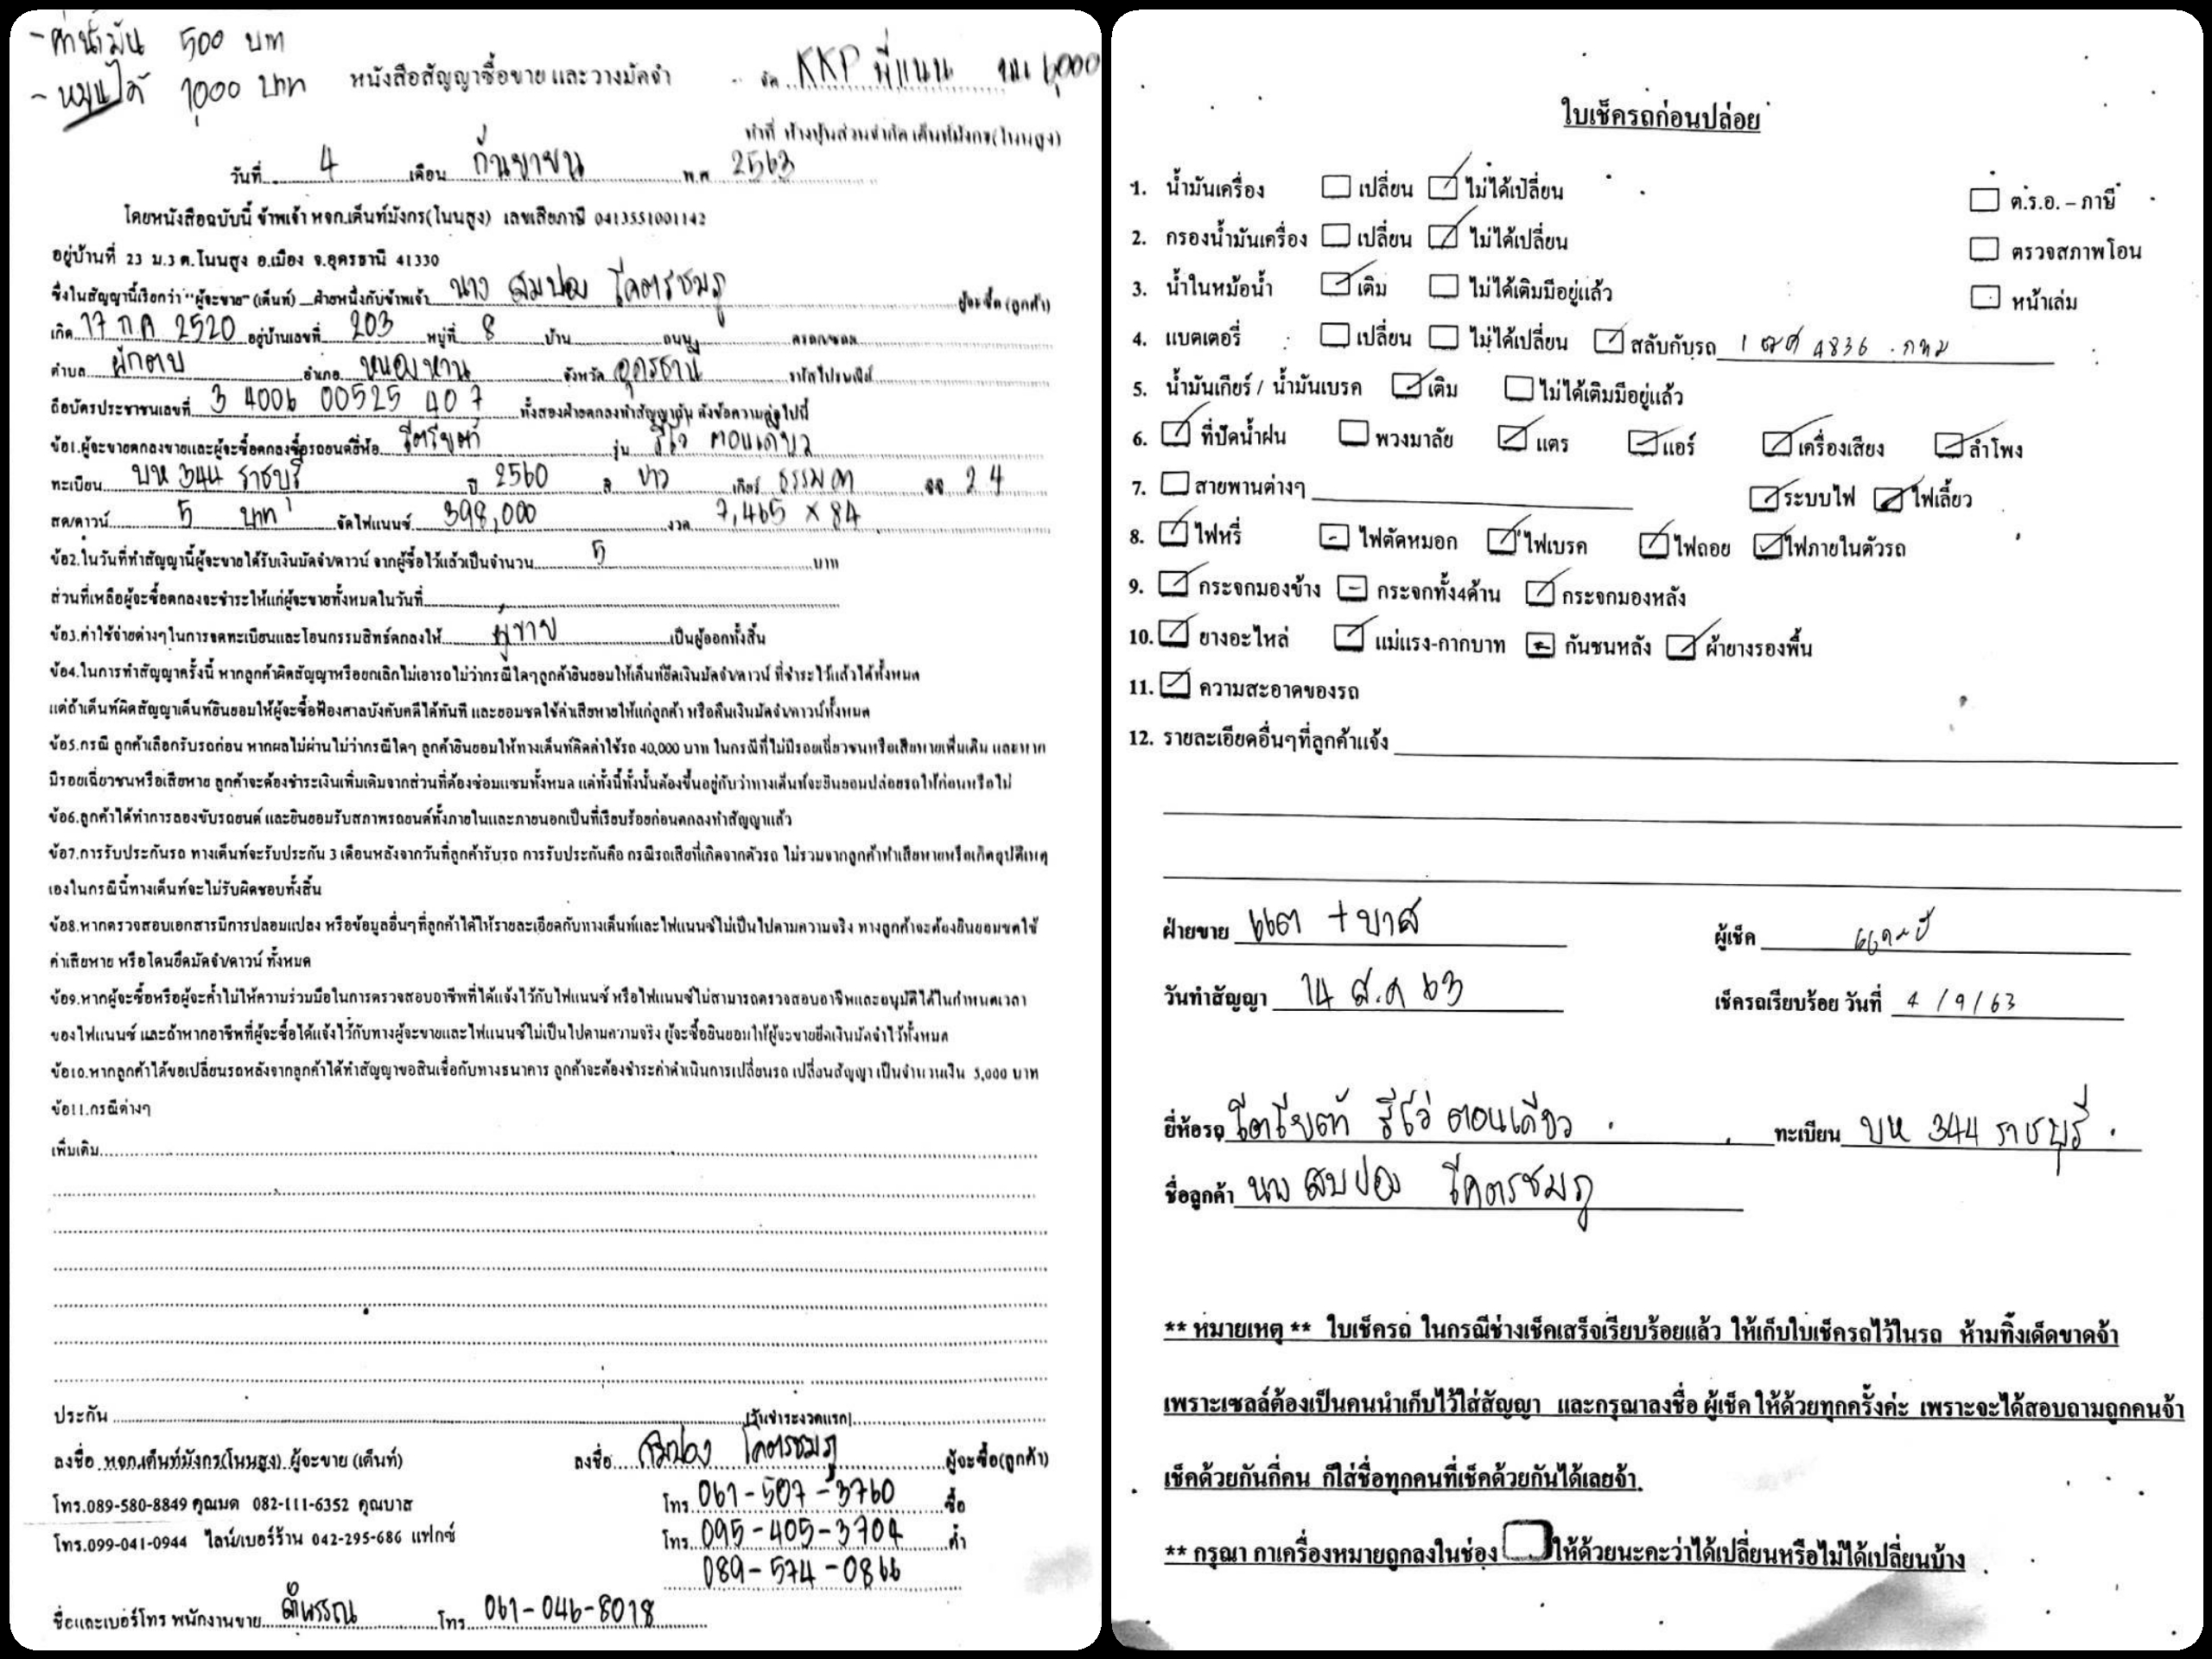 - ค่าน้ำมัน 500 บาท
- หมุนได้ 1000 บาท
หนังสือสัญญาซื้อขาย และวางมัดจำ
จัด KKP พี่แนน
ทำที่ ห้างหุ้นส่วนจำกัด เต็นท์มังกร(โนนสูง)
วันที่ 4 เดือน กันยายน พ.ศ. 2563
โดยหนังสือฉบับนี้ ข้าพเจ้า หจก.เต็นท์มังกร(โนนสูง) เลขเสียภาษี 0413551001142
อยู่บ้านที่ 23 ม.3 ต.โนนสูง อ.เมือง จ.อุดรธานี 41330
ซึ่งในสัญญานี้เรียกว่า "ผู้จะขาย" (เต็นท์) ฝ่ายหนึ่งกับข้าพเจ้า นาง สมปอง โคตรชมภู ผู้จะซื้อ (ลูกค้า)
เกิด 17 ก.ค 2520 อยู่บ้านเลขที่ 203 หมู่ที่ 8 บ้าน ถนน ตรอก/ซอย
ตำบล ผักตบ อำเภอ หนองหาน จังหวัด อุดรธานี รหัสไปรษณีย์
ถือบัตรประชาชนเลขที่ 3 4006 00525 40 7 ทั้งสองฝ่ายตกลงทำสัญญากัน ดังข้อความต่อไปนี้
ข้อ1.ผู้จะขายตกลงขายและผู้จะซื้อตกลงซื้อรถยนต์ยี่ห้อ โตโยต้า รุ่น รีโว่ ตอนเดียว
ทะเบียน บห 344 ราชบุรี ปี 2560 สี ขาว เกียร์ ธรรมดา ซีซี 2.4
สด/ดาวน์ 5 บาท จัดไฟแนนซ์ 398,000 งวด 7,465 x 84
ข้อ2.ในวันที่ทำสัญญานี้ผู้จะขายได้รับเงินมัดจำ/ดาวน์ จากผู้ซื้อไว้แล้วเป็นจำนวน 5 บาท
ส่วนที่เหลือผู้จะซื้อตกลงจะชำระให้แก่ผู้จะขายทั้งหมดในวันที่
ข้อ3.ค่าใช้จ่ายต่างๆในการจดทะเบียนและโอนกรรมสิทธิ์ตกลงให้ ผู้ขาย เป็นผู้ออกทั้งสิ้น
ข้อ4.ในการทำสัญญาครั้งนี้ หากลูกค้าผิดสัญญาหรือยกเลิกไม่เอารถไม่ว่ากรณีใดๆลูกค้ายินยอมให้เต็นท์ยึดเงินมัดจำ/ดาวน์ ที่ชำระไว้แล้วได้ทั้งหมด
แต่ถ้าเต็นท์ผิดสัญญาเต็นท์ยินยอมให้ผู้จะซื้อฟ้องศาลบังคับคดีได้ทันที และยอมชดใช้ค่าเสียหายให้แก่ลูกค้า หรือคืนเงินมัดจำ/ดาวน์ทั้งหมด
ข้อ5.กรณี ลูกค้าเลือกรับรถก่อน หากผลไม่ผ่านไม่ว่ากรณีใดๆ ลูกค้ายินยอมให้ทางเต็นท์คิดค่าใช้รถ 40,000 บาท ในกรณีที่ไม่มีรอยเฉี่ยวชนหรือเสียหายเพิ่มเติม และหาก
มีรอยเฉี่ยวชนหรือเสียหาย ลูกค้าจะต้องชำระเงินเพิ่มเติมจากส่วนที่ต้องซ่อมแซมทั้งหมด แต่ทั้งนี้ทั้งนั้นต้องขึ้นอยู่กับว่าทางเต็นท์จะยินยอมปล่อยรถให้ก่อนหรือไม่
ข้อ6.ลูกค้าได้ทำการลองขับรถยนต์ และยินยอมรับสภาพรถยนต์ทั้งภายในและภายนอกเป็นที่เรียบร้อยก่อนตกลงทำสัญญาแล้ว
ข้อ7.การรับประกันรถ ทางเต็นท์จะรับประกัน 3 เดือนหลังจากวันที่ลูกค้ารับรถ การรับประกันคือ กรณีรถเสียที่เกิดจากตัวรถ ไม่รวมจากลูกค้าทำเสียหายหรือเกิดอุบัติเหตุ
เองในกรณีนี้ทางเต็นท์จะไม่รับผิดชอบทั้งสิ้น
ข้อ8.หากตรวจสอบเอกสารมีการปลอมแปลง หรือข้อมูลอื่นๆที่ลูกค้าได้ให้รายละเอียดกับทางเต็นท์และไฟแนนซ์ไม่เป็นไปตามความจริง ทางลูกค้าจะต้องยินยอมชดใช้
ค่าเสียหาย หรือโดนยึดมัดจำ/ดาวน์ ทั้งหมด
ข้อ9.หากผู้จะซื้อหรือผู้จะค้ำไม่ให้ความร่วมมือในการตรวจสอบอาชีพที่ได้แจ้งไว้กับไฟแนนซ์ หรือไฟแนนซ์ไม่สามารถตรวจสอบอาชีพและอนุมัติได้ในกำหนดเวลา
ของไฟแนนซ์ และถ้าหากอาชีพที่ผู้จะซื้อได้แจ้งไว้กับทางผู้จะขายและไฟแนนซ์ไม่เป็นไปตามความจริง ผู้จะซื้อยินยอมให้ผู้จะขายยึดเงินมัดจำไว้ทั้งหมด
ข้อ10.หากลูกค้าได้ขอเปลี่ยนรถหลังจากลูกค้าได้ทำสัญญาขอสินเชื่อกับทางธนาคาร ลูกค้าจะต้องชำระค่าดำเนินการเปลี่ยนรถ เปลี่ยนสัญญา เป็นจำนวนเงิน 5,000 บาท
ข้อ11.กรณีต่างๆ
เพิ่มเติม
ประกัน วันชำระงวดแรก
ลงชื่อ หจก.เต็นท์มังกร(โนนสูง) ผู้จะขาย (เต็นท์) ลงชื่อ สมปอง โคตรชมภู ผู้จะซื้อ(ลูกค้า)
โทร.089-580-8849 คุณมด 082-111-6352 คุณบาส โทร. 061-507-3760 ซื้อ
โทร.099-041-0944 ไลน์/เบอร์ร้าน 042-295-686 แฟกซ์ โทร. 095-405-3704 ค้ำ
089-574-0866
ชื่อและเบอร์โทร พนักงานขาย โทร. 061-046-8018
ใบเช็ครถก่อนปล่อย
1. น้ำมันเครื่อง เปลี่ยน ไม่ได้เปลี่ยน ต.ร.อ. – ภาษี
2. กรองน้ำมันเครื่อง เปลี่ยน ไม่ได้เปลี่ยน ตรวจสภาพโอน
3. น้ำในหม้อน้ำ เติม ไม่ได้เติมมีอยู่แล้ว หน้าเล่ม
4. แบตเตอรี่ : เปลี่ยน ไม่ได้เปลี่ยน สลับกับรถ 4836 กทม
5. น้ำมันเกียร์ / น้ำมันเบรค เติม ไม่ได้เติมมีอยู่แล้ว
6. ที่ปัดน้ำฝน พวงมาลัย แตร แอร์ เครื่องเสียง ลำโพง
7. สายพานต่างๆ ระบบไฟ ไฟเลี้ยว
8. ไฟหรี่ ไฟตัดหมอก ไฟเบรค ไฟถอย ไฟภายในตัวรถ
9. กระจกมองข้าง กระจกทั้ง4ด้าน กระจกมองหลัง
10. ยางอะไหล่ แม่แรง-กากบาท กันชนหลัง ผ้ายางรองพื้น
11. ความสะอาดของรถ
12. รายละเอียดอื่นๆที่ลูกค้าแจ้ง
ฝ่ายขาย + บาส ผู้เช็ค
วันทำสัญญา 14 ส.ค 63 เช็ครถเรียบร้อย วันที่ 4 / 9 / 63
ยี่ห้อรถ โตโยต้า รีโว่ ตอนเดียว ทะเบียน บห 344 ราชบุรี
ชื่อลูกค้า นาง สมปอง โคตรชมภู
** หมายเหตุ ** ใบเช็ครถ ในกรณีช่างเช็คเสร็จเรียบร้อยแล้ว ให้เก็บใบเช็ครถไว้ในรถ ห้ามทิ้งเด็ดขาดจ้า
เพราะเซลล์ต้องเป็นคนนำเก็บไว้ใส่สัญญา และกรุณาลงชื่อ ผู้เช็ค ให้ด้วยทุกครั้งค่ะ เพราะจะได้สอบถามถูกคนจ้า
เช็คด้วยกันกี่คน ก็ใส่ชื่อทุกคนที่เช็คด้วยกันได้เลยจ้า.
** กรุณา กาเครื่องหมายถูกลงในช่อง ให้ด้วยนะคะว่าได้เปลี่ยนหรือไม่ได้เปลี่ยนบ้าง